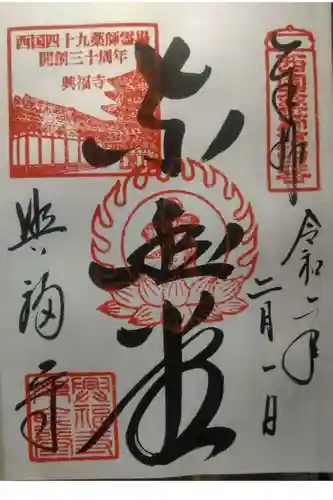 奉拝
令和二年
二月一日
東金堂
西国四十九薬師霊場
開創三十周年
興福寺
興福寺